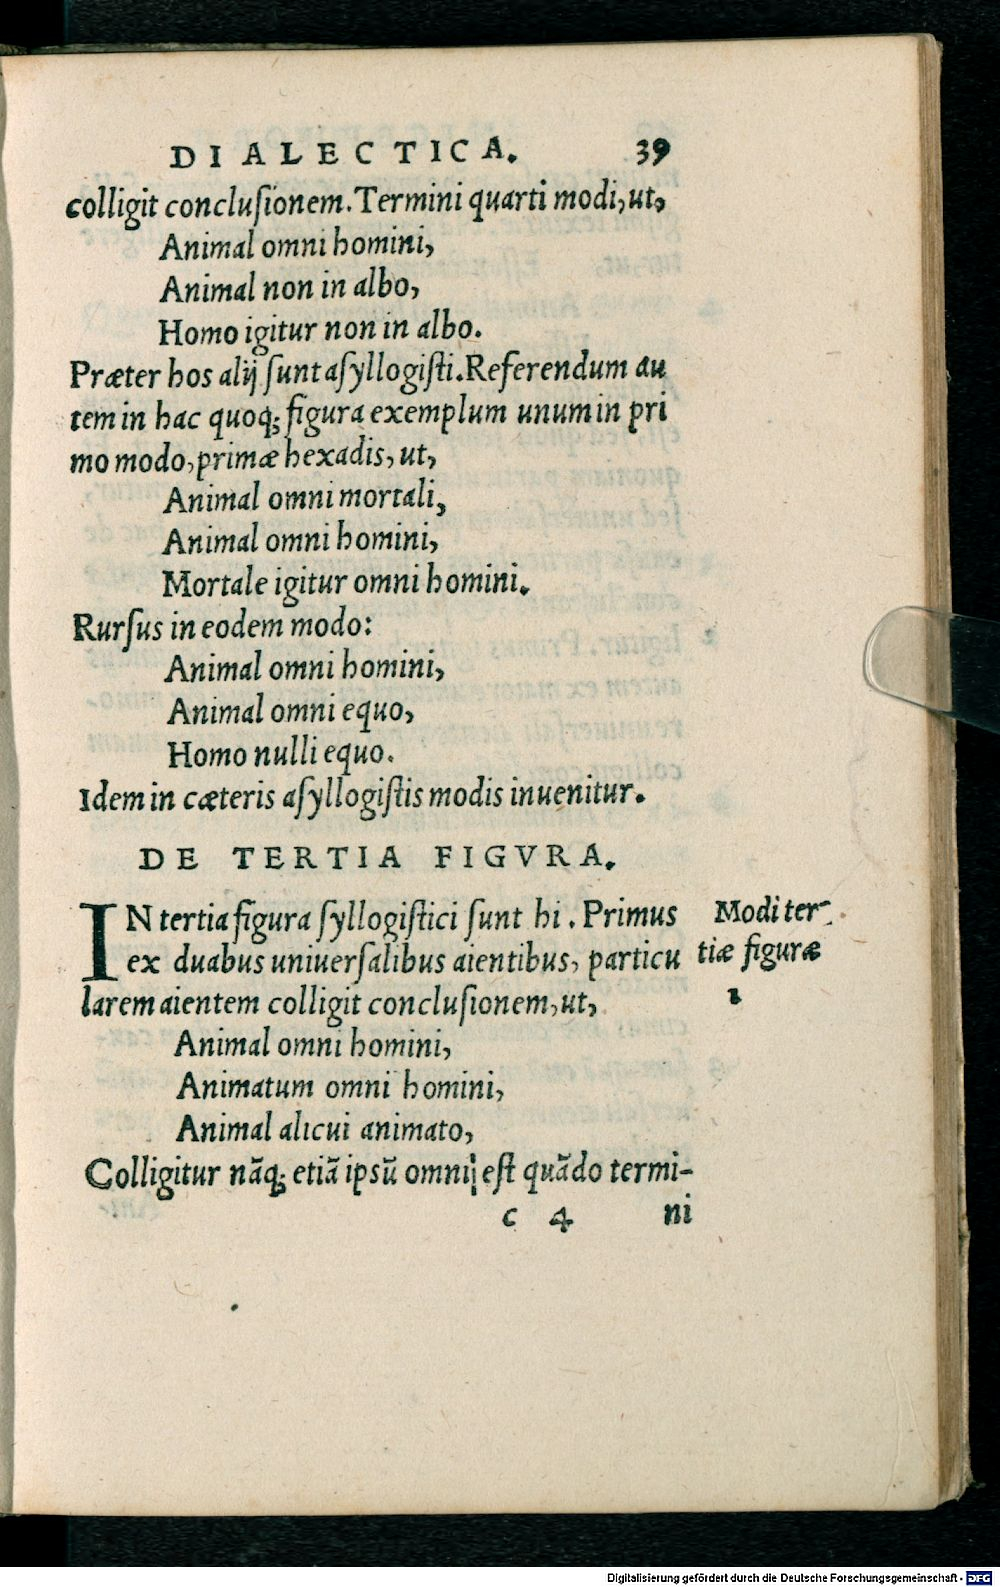 DIALECTICA. 39
colligit conclusionem. Termini quarti modi, ut,
Animal omni homini,
Animal non in albo,
Homo igitur non in albo.
Præter hos alij sunt asyllogisti. Referendum au
tem in hac quoq; figura exemplum unum in pri
mo modo, primæ hexadis, ut,
Animal omni mortali,
Animal omni homini,
Mortale igitur omni homini.
Rursus in eodem modo:
Animal omni homini,
Animal omni equo,
Homo nulli equo.
Idem in cæteris asyllogistis modis inuenitur.
DE TERTIA FIGVRA.
IN tertia figura syllogistici sunt hi. Primus
ex duabus uniuersalibus aientibus, particu
larem aientem colligit conclusionem, ut,
Animal omni homini,
Animatum omni homini,
Animal alicui animato,
Colligitur nãq; etiã ipsũ omni; est quãdo termi-
c 4 ni
Modi ter-
tiæ figuræ
1
Digitalisierung gefördert durch die Deutsche Forschungsgemeinschaft - DFG